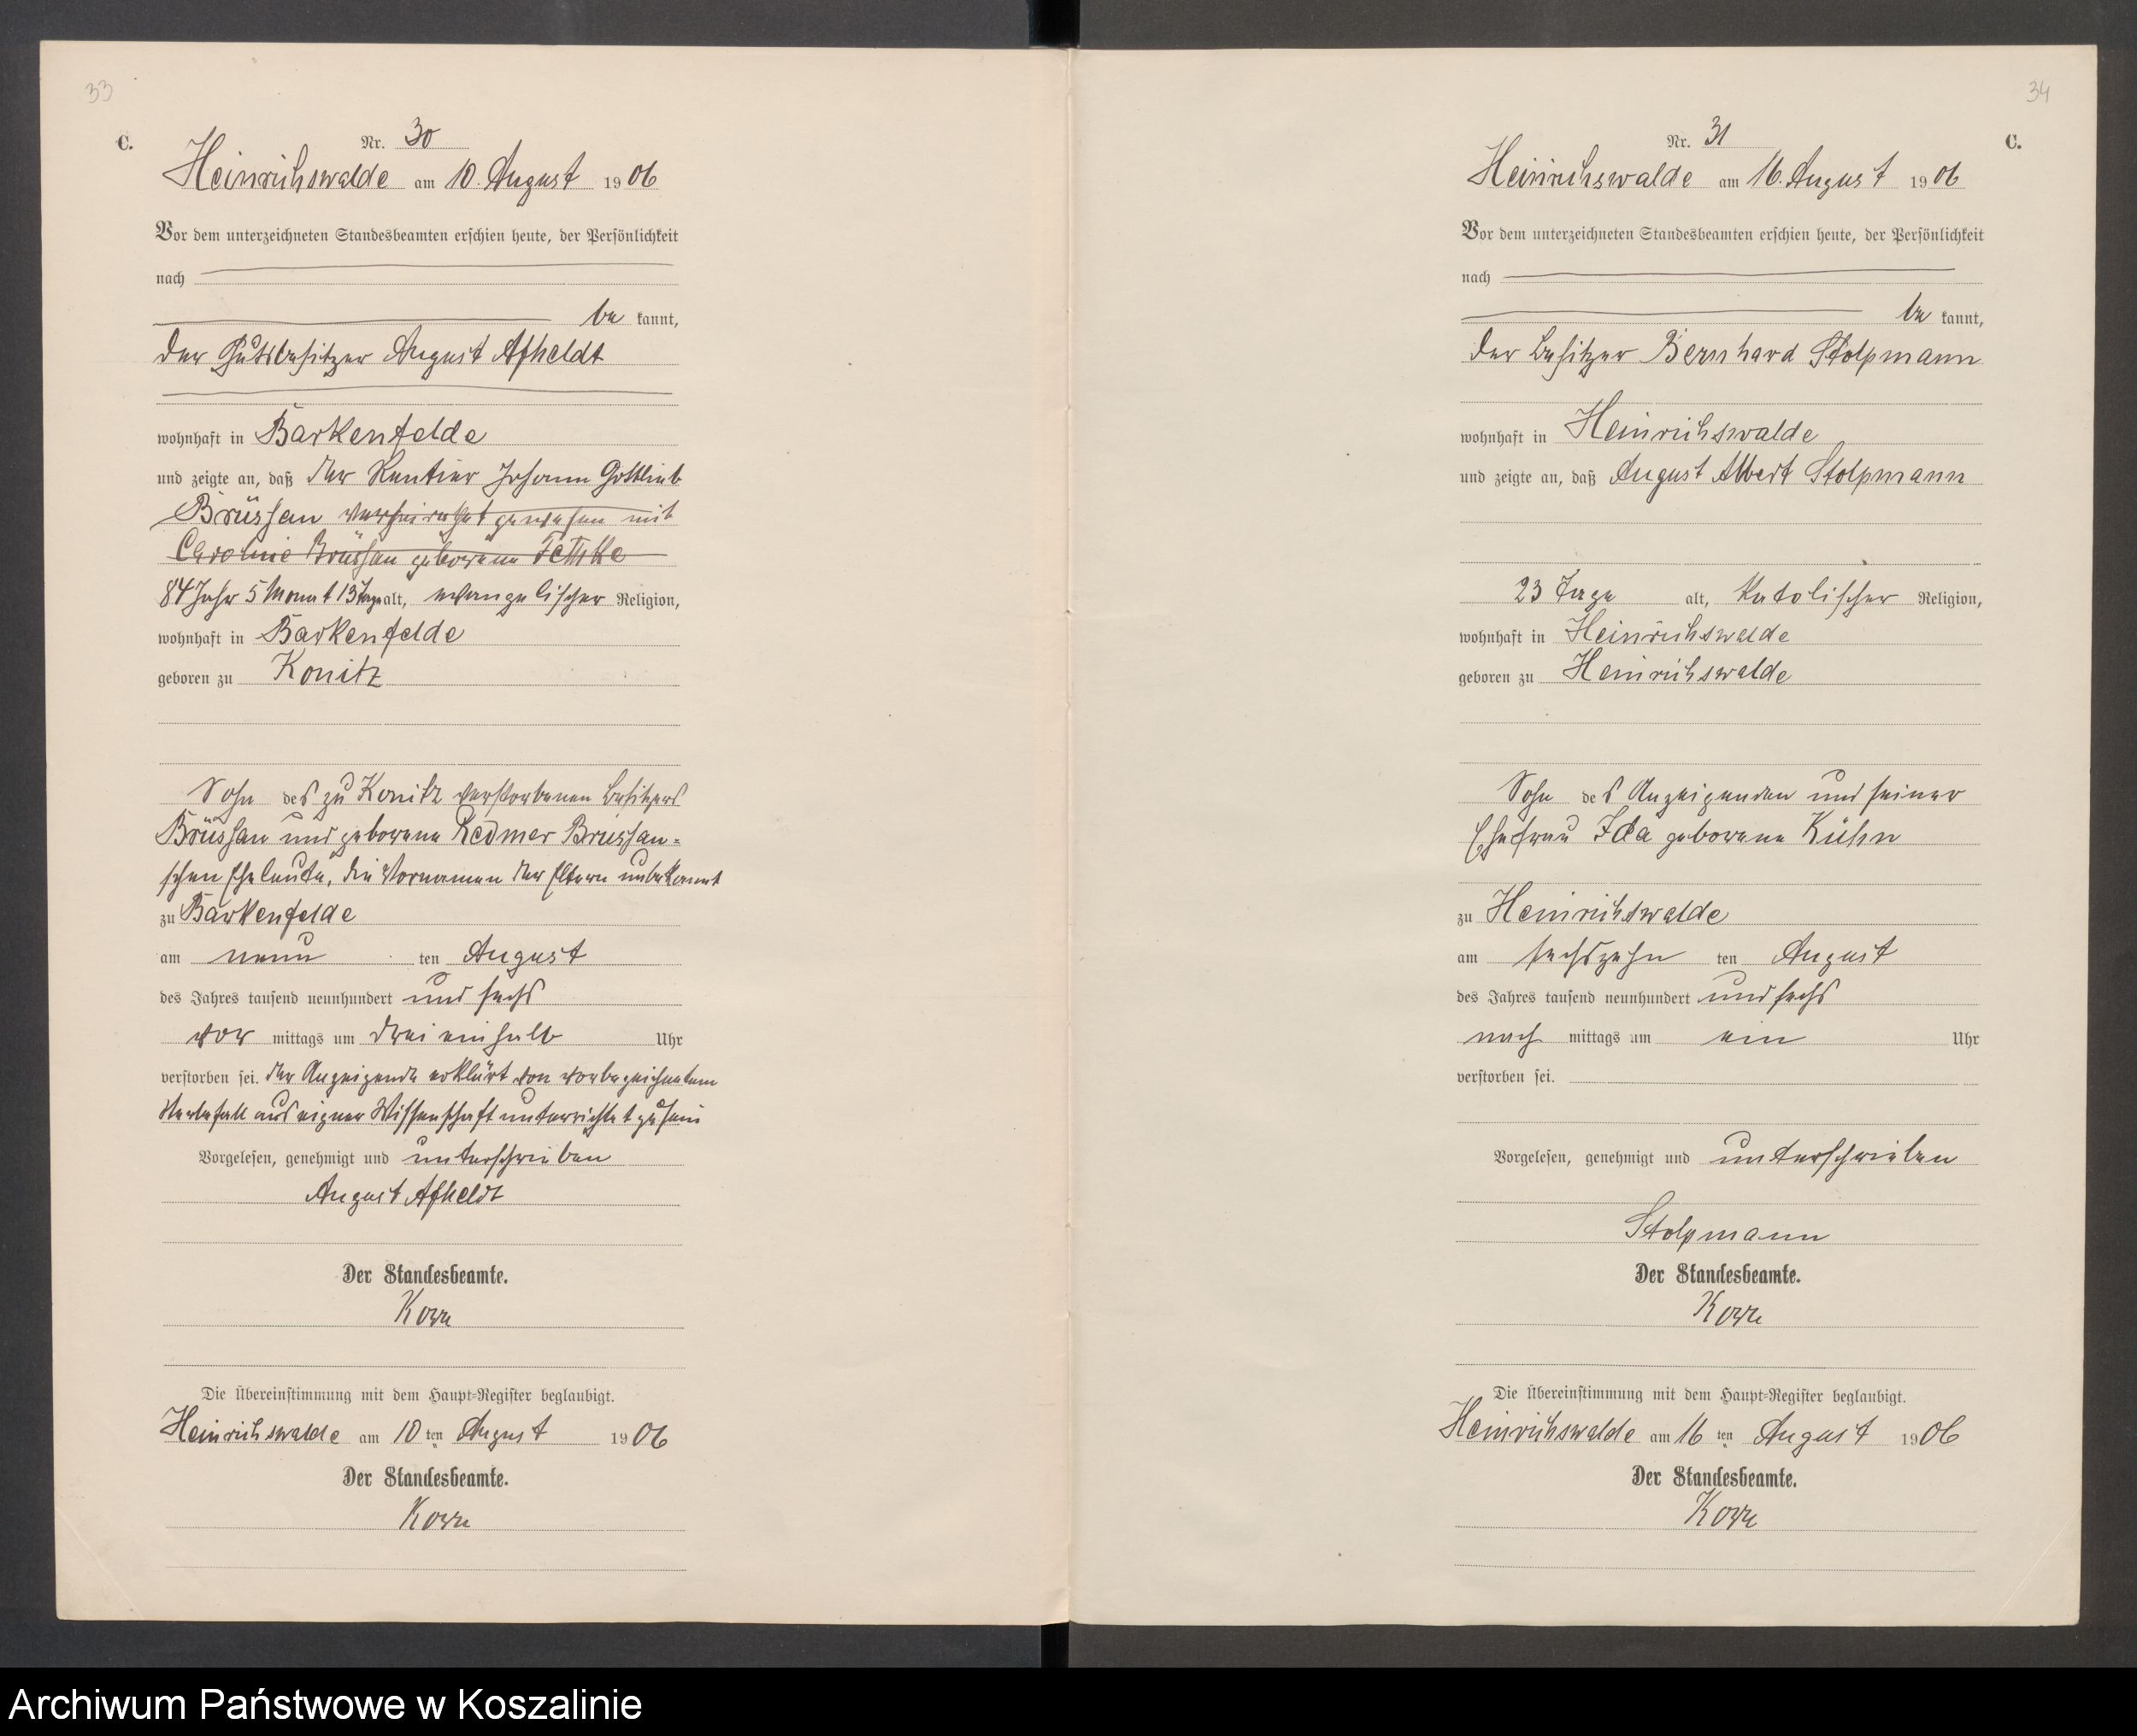 33
C.
Nr. 30
Heinrichswalde am 10. August 1906
Vor dem unterzeichneten Standesbeamten erschien heute, der Persönlichkeit
nach
be kannt,
der Gutsbesitzer August Afheldt
wohnhaft in Barkenfelde
und zeigte an, daß der Rentier Johann Gottlieb
Brüssau verheirathet gewesen mit
Caroline Brüssau geborene
84 Jahr 5 Monat 13 Tage alt, evangelischer Religion,
wohnhaft in Barkenfelde
geboren zu Konitz
Sohn des zu Konitz verstorbenen Besitzers
Brüssau und geborene Redmer Brüssau-
schen Eheleute, die Vornamen der Eltern unbekannt
zu Barkenfelde
am neun ten August
des Jahres tausend neunhundert und sechs
vor mittags um drei einhalb Uhr
verstorben sei. Der Anzeigende erklärt von vorbezeichnetem
Sterbefall aus eigner Wissenschaft unterrichtet zu sein
Vorgelesen, genehmigt und unterschrieben
August Afheldt
Der Standesbeamte.
Die Übereinstimmung mit dem Haupt-Register beglaubigt.
Heinrichswalde am 10 ten August 1906
Der Standesbeamte.
34
C.
Nr. 31
Heinrichswalde am 16. August 1906
Vor dem unterzeichneten Standesbeamten erschien heute, der Persönlichkeit
nach
be kannt,
der Besitzer Bernhard Stolpmann
wohnhaft in Heinrichswalde
und zeigte an, daß August Albert Stolpmann
23 Tage alt, katolischer Religion,
wohnhaft in Heinrichswalde
geboren zu Heinrichswalde
Sohn des Anzeigenden und seiner
Ehefrau Ida geborene Kühn
zu Heinrichswalde
am sechszehn ten August
des Jahres tausend neunhundert und sechs
nach mittags um ein Uhr
verstorben sei.
Vorgelesen, genehmigt und unterschrieben
Stolpmann
Der Standesbeamte.
Die Übereinstimmung mit dem Haupt-Register beglaubigt.
Heinrichswalde am 16 ten August 1906
Der Standesbeamte.
Archiwum Państwowe w Koszalinie